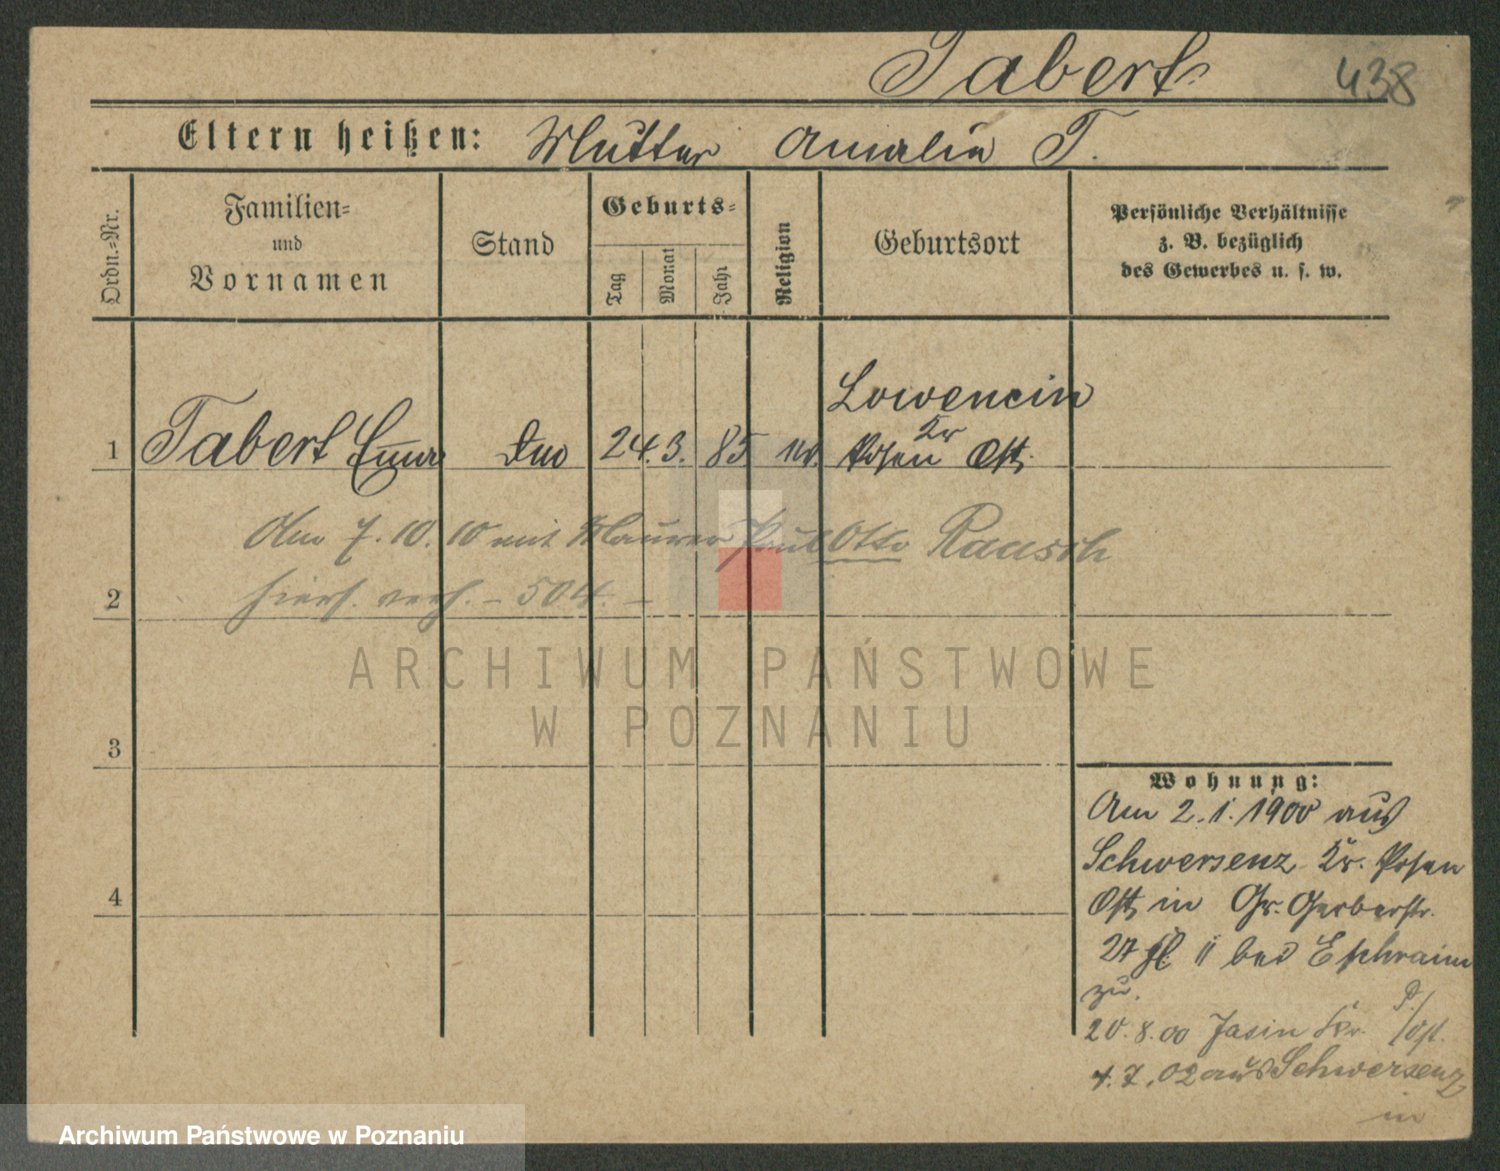 Tabert 438
Eltern heißen: Mutter Amalie T.
Ordn.-Nr.
Familien-
und
Vornamen
Stand
Geburts-
Tag
Monat
Jahr
Religion
Geburtsort
Persönliche Verhältnisse
z. B. bezüglich
des Gewerbes u. s. w.
Lowencin
1 Tabert Emma 24. 3. 85 ev. Posen Kr Ost
Am 7. 10. 10 mit Maurer Paul Otto Raasch
2 hiers. verh. - 504. -
ARCHIWUM PAŃSTWOWE
W POZNANIU
3
4
Wohnung:
Am 2. 1. 1900 aus
Schwersenz Kr. Posen
Ost in Gr. Gerberstr.
27 II bei Ephraim
zu.
20. 8. 00 Jasin Kr. P/Ost.
4. 7. 02 aus Schwersenz
in
Archiwum Państwowe w Poznaniu